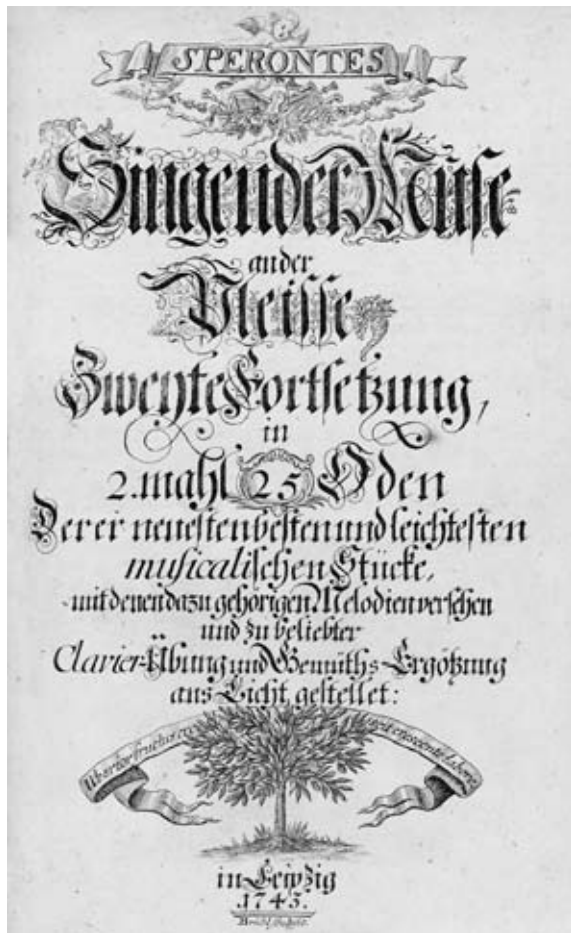 SPERONTES
Singender Muse
an der
Pleisse
Zweyte Fortsetzung,
in
2. mahl 25 Oden
Derer neuesten besten und leichtesten
musicalischen Stücke,
mit denen dazu gehörigen Melodien versehen
und zu beliebter
Clavier-Übung und Gemüths-Ergötzung
ans Licht gestellet:
in Leipzig
1743.